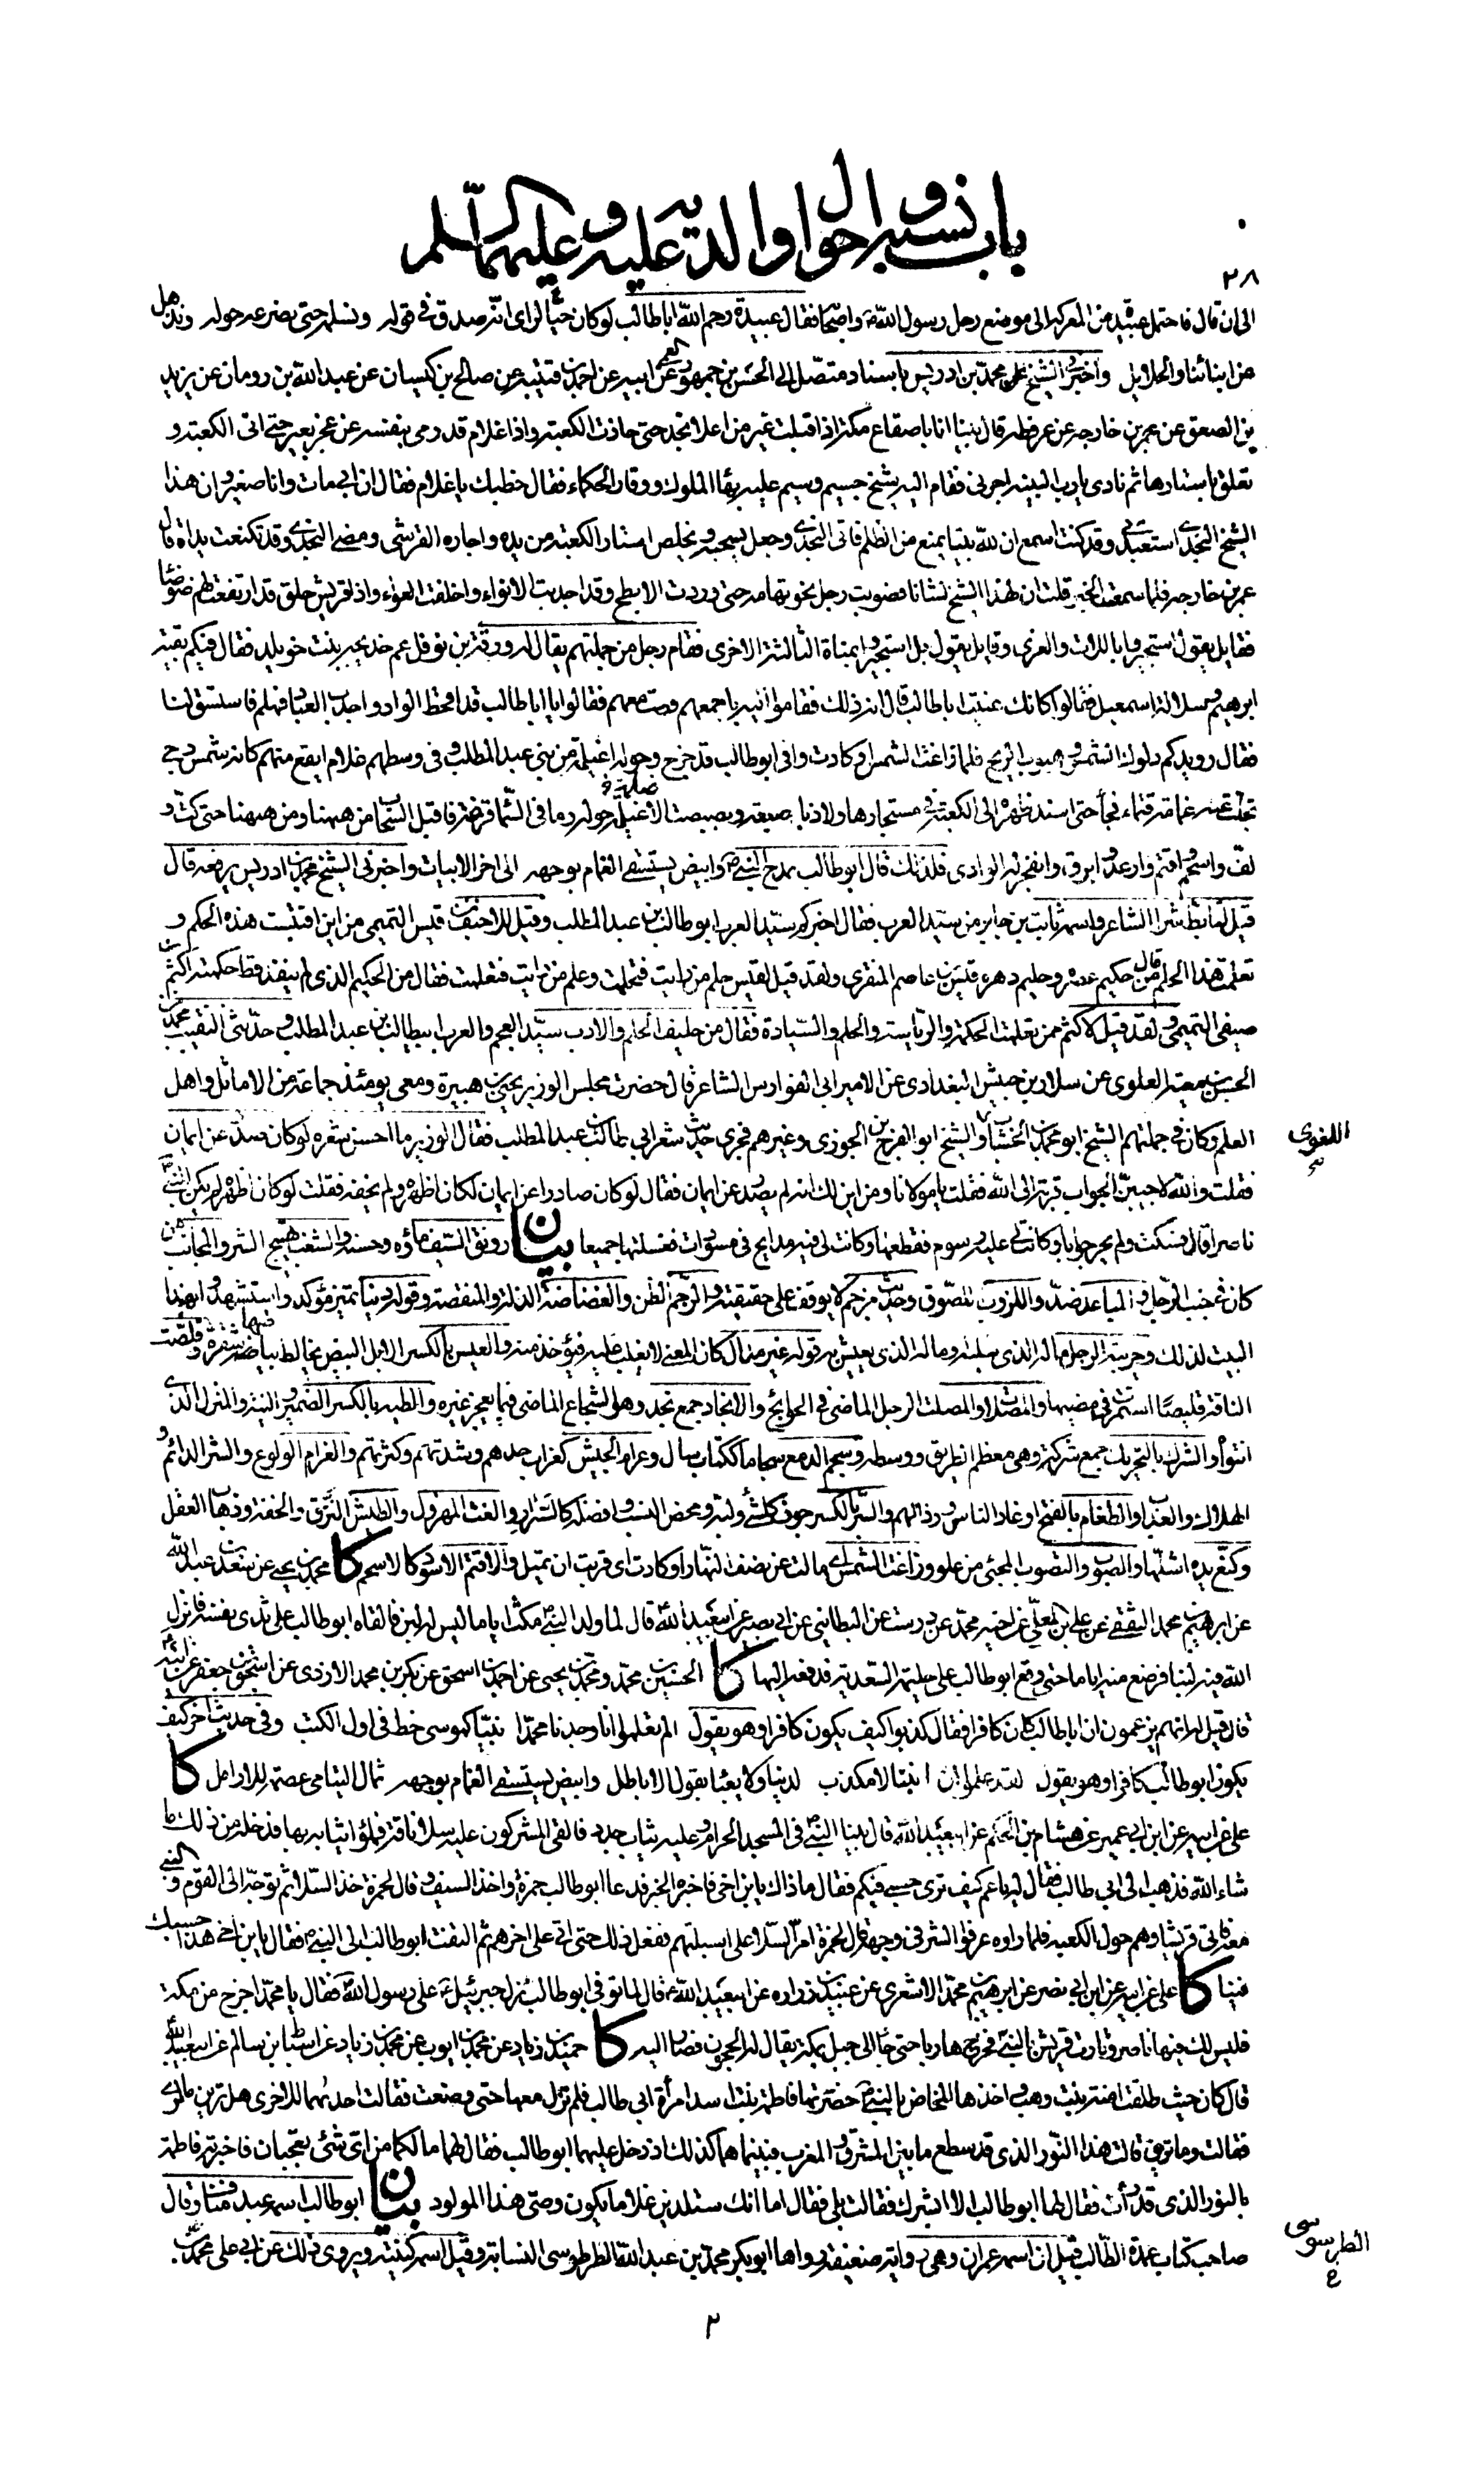 باب نسبه و احوال والديه عليه و عليهما السلام
٢٨
الى ان قال فاحتمل عبيدة من المعركة الى موضع رحل رسول الله ص و اصحابه فقال عبيدة رحم الله اباطالب لو كان حيّا لراى انّه صدق فى قوله و نسلمه حتى نصرع حوله و نذهل
عن ابنائنا و الحلايل و اخبرنى الشيخ محمّد بن ادريس باسناد متصل الى الحسن بن جمهور العمى عن ابيه عن احمد بن قتيبه عن صالح بن كيسان عن عبد الله بن رومان عن يزيد
بن الصعق عن عمر بن خارجه عن عرفطه قال بينا انا باصقاع مكّة اذا اقبلت عير من اعلا نجد حتى حاذت الكعبة و اذا غلام قد رمى بنفسه عن عجز بعير حتى اتى الكعبة و
تعلق باستارها ثم نادى يا رب البنية اجرنى فقام اليه شيخ جسيم وسيم عليه بهاء الملوك و وقار الحكماء فقال خطبك يا غلام فقال ان ابى مات و انا صغير و ان هذا
الشيخ النجدى استعبدنى و قد كنت اسمع ان لله بيتا يمنع من الظلم فاتى النجدى و جعل يسحبه و يخلص استار الكعبة من يده و اجاره القرشى و مضى النجدى و قد تكنعت يداه قال
عمر بن خارجه فلما سمعت الخبر قلت ان لهذا الشيخ لشانا فصوبت رحلى نحو تهامه حتى وردت الابطح و قد اجدبت الانواء و اخلفت العواء و اذا قريش حلق قد ارتفعت لهم ضوضاء
فقايل يقول استجيروا باللات و العزى و قايل يقول بل استجيروا بمناة الثالثة الاخرى فقام رجل من جملتهم يقال له ورقة بن نوفل عم خديجه بنت خويلد فقال فيكم بقية
ابرهيم و سلالة اسمعيل فقالوا كانك عنيت اباطالب قال انه ذلك فقاموا اليه باجمعهم و قمت معهم فقالوا يا اباطالب قد اقحط الواد و اجدب العباد فهلم فاستسق لنا
فقال رويدكم دلوك الشمس و هبوب الريح فلما زاغت الشمس او كادت وافى ابوطالب قد خرج و حوله اغيلمة من بنى عبد المطلب و فى وسطهم غلام ايفع منهم كانه شمس دجى
تجلت عنه غمامة قتماء فجاء حتى اسند ظهره الى الكعبة فى مستجارها و لاذ باصبعه و بصبصت الاغيلمة حوله و ما فى السّماء قزعة فاقبل السّحاب من ههنا و من ههنا حتى كثّ و
لفّ و اسحم و اقتم و ارعد و ابرق و انفجر له الوادى فلذلك قال ابوطالب يمدح النبى ص و ابيض يستسقى الغمام بوجهه الى اخر الابيات و اخبرنى الشيخ محمد بن ادريس يرفعه قال
قيل لتابّط شرا الشاعر و اسمه ثابت بن جابر من سيّد العرب فقال اخبركم سيّد العرب ابوطالب بن عبد المطلب و قيل للاحنف بن قيس التميمى من اين اقتبست هذه الحكم و
تعلمت هذا الحلم قال من حكيم عصره و حليم دهره قيس بن عاصم المنقرى و لقد قيل لقيس حلم من رايت فتحلمت و علم من رايت فتعلمت فقال من الحكيم الذى لم ينفد قط حكمته اكثم بن
صيفى التميمى و لقد قيل لاكثم ممن تعلمت الحكمة و الرياسة و الحلم و السّيادة فقال من حليف الحلم و الادب سيّد العجم و العرب ابيطالب بن عبد المطلب و حدّثنى النقيب محمد بن
الحسن بن معية العلوى عن سلار بن حبيش البغدادى عن الامير ابى الفوارس الشاعر قال حضرت مجلس الوزير يحيى بن هبيرة و معى يومئذ جماعة من الاماثل و اهل
العلم و كان فى جملتهم الشيخ ابو محمد بن الخشاب و الشيخ ابو الفرج بن الجوزى و غيرهم فجرى حديث شعر ابى طالب بن عبد المطلب فقال الوزير ما احسن شعره لو كان صدر عن ايمان
اللغوى
فقلت و الله لاجيبنّ الجواب قربة الى الله فقلت يا مولانا و من اين لك انه لم يصدر عن ايمان فقال لو كان صادرا عن ايمان لكان اظهره و لم يخفه فقلت لو كان اظهره لم يكن للنبى ص
ناصر قال فسكت و لم يحر جوابا و كانت لى عليه رسوم فقطعها و كانت لى فيه مدايح فى مسودات فغسلتها جميعا بيان رونق السّيف ماؤه و حسنه و الشغب تهييج الشر و المجانب من
كان فى جنب الرّجل و المباعد ضدّ و اللزوب اللصوق و حديث مرجم لا يوقف على حقيقته و الرّجم الظن و الغضاضة الذلة و المنقصة و قوله دينا تميز مؤكد و استشهدوا بهذا
البيت لذلك و حريبة الرجل ماله الذى سلبه و ماله الذى يعيش به قوله غير منال كان المعنى لا يغلب عليه فيؤخذ منه و العيس بالكسر الابل البيض يخالط بياضها شقرة و قلصت
الناقة قليصا استمرت فى مضيها و المصدات و المصلت الرجل الماضى فى الحوايج و الانجاد جمع نجد و هو الشجاع الماضى فيما يعجز غيره و الطية بالكسر الضمير و النية و المنزل الذى
انتوى و الشرك بالتحريك جمع شركة و هى معظم الطريق و وسطه و سجم الدمع سجاما ككتاب سال و عرام الجيش كغراب حدهم و شدتهم و كثرتهم و الغرام الولوع و الشر الدائم و
الهلاك و العذاب و الطغام بالفتح اوغاد الناس و رذالهم و السّر بالكسر جوف كل شئ و لبه و محض النسب و افضله كالسّرار و الغث المهزول و الطيش النّزق و الخفة و ذهاب العقل
و كنّع يده اشلّها و الصوب و التصوب المجئ من علو و زاغت الشمس اى مالت عن نصف النّهار او كادت اى قربت ان تميل و الاقتم الاسود كالاسحم كا محمد بن يحيى عن سعد بن عبد الله
عن ابرهيم بن محمد الثقفى عن على بن المعلّى عن اخيه محمّد عن درست عن البطاينى عن ابى بصير عن ابيعبد الله ع قال لما ولد النبى ص مكث اياما ليس له لبن فالقاه ابوطالب على ثدى نفسه فانزل
الله فيه لبنا فرضع منه اياما حتى وقع ابوطالب على حليمة السّعدية فدفعه اليها كا الحسين بن محمّد و محمد بن يحيى عن احمد بن اسحق عن بكر بن محمد الازدى عن اسحق بن جعفر عن ابيه ع
قال قيل له انهم يزعمون ان اباطالب كان كافرا فقال كذبوا كيف يكون كافرا و هو يقول الم تعلموا انا وجدنا محمّدا نبيّا كموسى خط فى اول الكتب و فى حديث اخر كيف
يكون ابوطالب كافرا و هو يقول لقد علموا ان ابننا لا مكذب لدينا و لا يعبأ بقول الاباطل و ابيض يستسقى الغمام بوجهه ثمال اليتامى عصمة للارامل كا
على عن ابيه عن ابن ابى عمير عن هشام بن الحكم عن ابيعبد الله ع قال بينا النبى ص فى المسجد الحرام و عليه ثياب جدد فالقى المشركون عليه سلا ناقة فملؤا ثيابه بها فدخله من ذلك ما
شاء الله فذهب الى ابى طالب فقال له يا عم كيف ترى حسبى فيكم فقال ما ذاك يا بن اخى فاخبره الخبر فدعا ابوطالب حمزة و اخذ السيف و قال لحمزة خذ السّلا ثم توجّه الى القوم و النبى
معه فاتى قريشا و هم حول الكعبة فلما راوه عرفوا الشر فى وجهه ثم قال لحمزة امرّ السّلا على اسبلتهم ففعل ذلك حتى اتى على اخرهم ثم التفت ابوطالب الى النبى ص فقال يا بن اخى هذا حسبك
فينا كا على عن ابيه عن ابن ابى نصر عن ابرهيم بن محمّد الاشعرى عن عبيد بن زراره عن ابيعبد الله ع قال لما توفى ابوطالب نزل جبرئيل ع على رسول الله ص فقال يا محمّد اخرج من مكة
فليس لك فيها ناصر و ثارت قريش بالنبى ص فخرج هاربا حتى جاء الى جبل بمكة يقال له الحجون فصار اليه كا حميد بن زياد عن محمد بن ايوب عن محمد بن زياد عن اسباط بن سالم عن ابيعبد الله ع
قال كان حيث طلقت امنة بنت وهب و اخذها المخاض بالنبى ص حضرتها فاطمة بنت اسد امرأة ابى طالب فلم تزل معها حتى وضعت فقالت احدهما للاخرى هل ترين ما ارى
فقالت و ما ترين قالت هذا النّور الذى قد سطع ما بين المشرق و المغرب فبينما هما كذلك اذ دخل عليهما ابوطالب فقال لهما ما لكما من اى شئ تعجبان فاخبرته فاطمة
بالنور الذى قد رأت فقال لها ابوطالب الا ابشرك فقالت بلى فقال اما انك ستلدين غلاما يكون وصى هذا المولود بيان ابوطالب اسمه عبد مناف و قال
صاحب كتاب عمدة الطّالب قيل ان اسمه عمران و هى رواية ضعيفة رواها ابو بكر محمّد بن عبد الله الطرطوسى النسابة و قيل اسمه كنيته و يروى ذلك عن ابى على محمّد بن
الطرسوسى
ع
٢